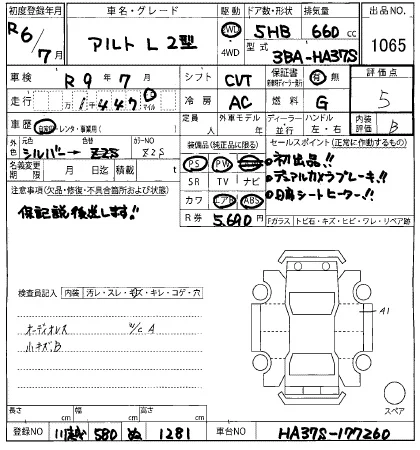 初度登録年月 車名・グレード 駆動 ドア数・形状 排気量 出品NO
R6/7月 アルト L 2型 2WD 4WD 5HB 660cc 1065
型式 3BA-HA37S
車検 R9年7月 シフト CVT 保証書 有 無 評価点 5
走行 万1千447 km マイル 冷房 AC 燃料 G
車歴 自家用・レンタ・事業用( ) 定員 人 外車モデル 年 ディーラー 並行 ハンドル 左・右 内装 B
外色 元色 シルバー→ 色替 Z2S カラーNO Z2S 装備品(純正品に限る) セールスポイント(正常に作動するもの)
名義変更期限 月 日迄 積載 t PS PW
・初出品!!
・デュアルカメラブレーキ!!
・シートヒーター!!
注意事項(欠品・修復・不具合箇所および状態) SR TV ナビ
保記説後送します!! カワ エアB ABS
R券 5,690円 Fガラス トビ石・キズ・ヒビ・ワレ・リペア跡
検査員記入 内装 汚レ・スレ・キズ・キレ・コゲ・穴
オーディオレス W/C A
小キズB
A1
スペア
長さ cm 幅 cm 高さ cm
登録NO 川越 580 ぬ 1281 車台NO HA37S-177260